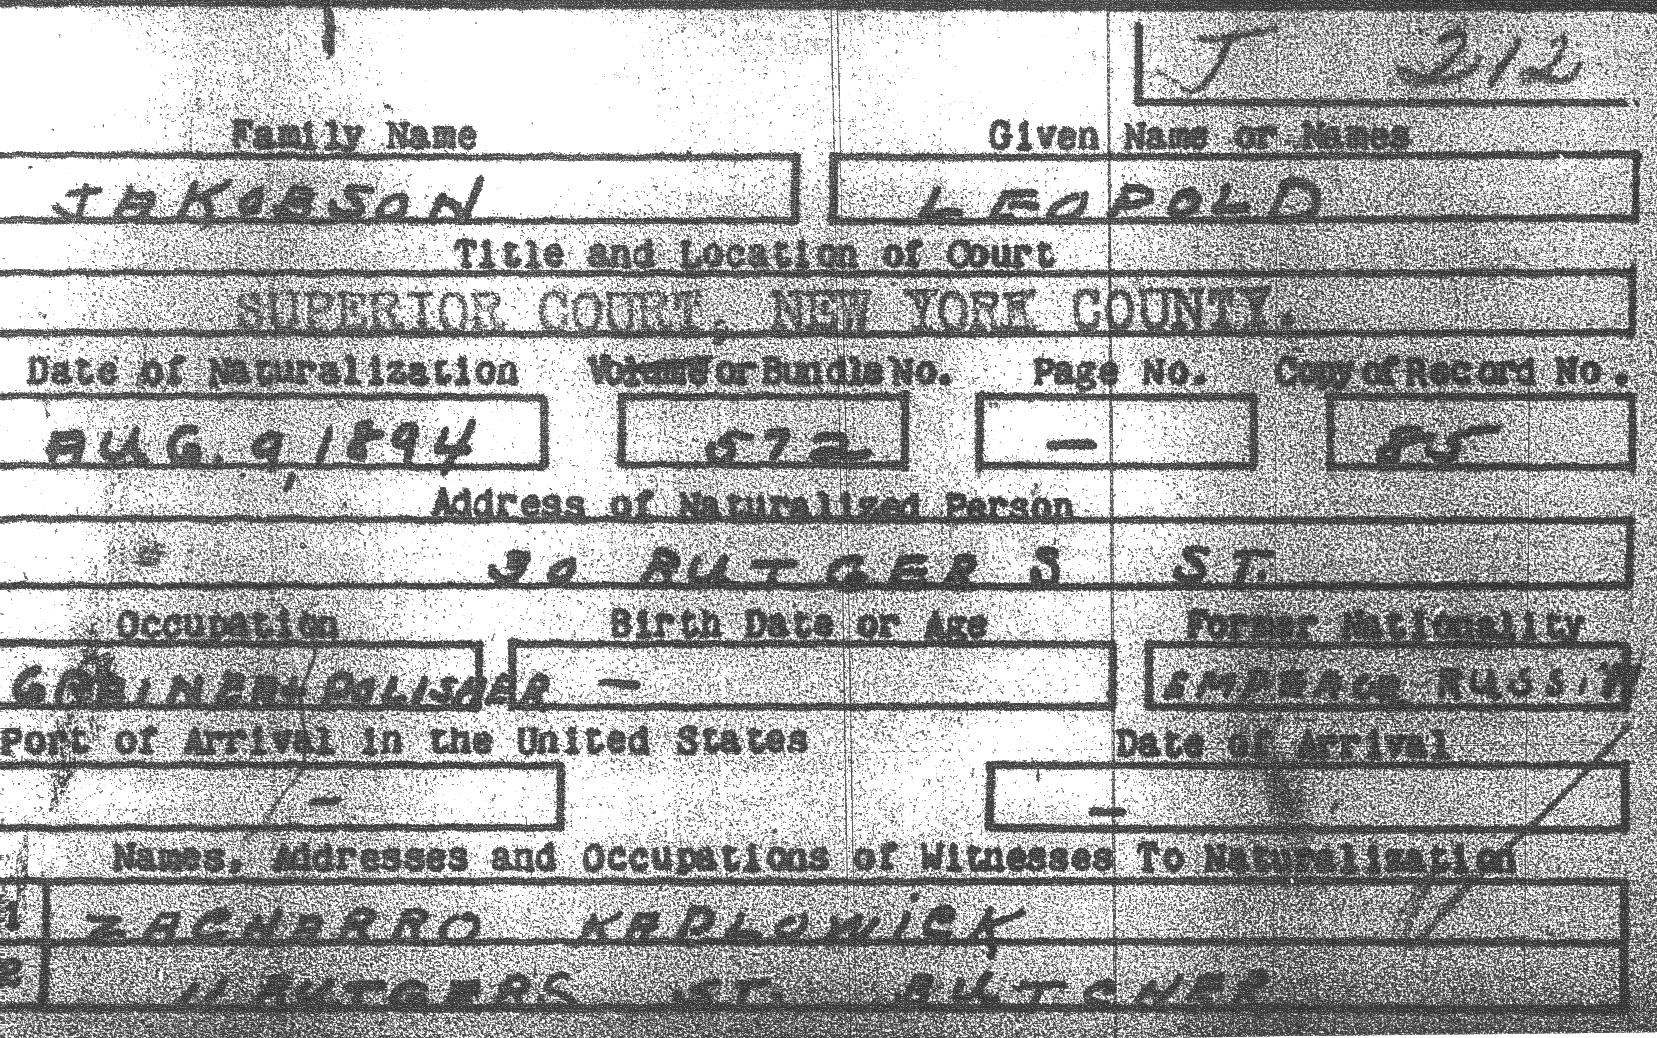 J 212
Family Name Given Name or Names
JAKOBSON LEOPOLD
Title and Location of Court
SUPERIOR COURT, NEW YORK COUNTY.
Date of Naturalization Volume or Bundle No. Page No. Copy of Record No.
AUG. 9, 1894 572 — 85
Address of Naturalized Person
30 RUTGERS ST.
Occupation Birth Date or Age Former Nationality
CABINET POLISHER — RUSSIA
Port of Arrival in the United States Date of Arrival
— —
Names, Addresses and Occupations of Witnesses To Naturalization
KAPLOWICK
RUTGERS ST. BUTCHER